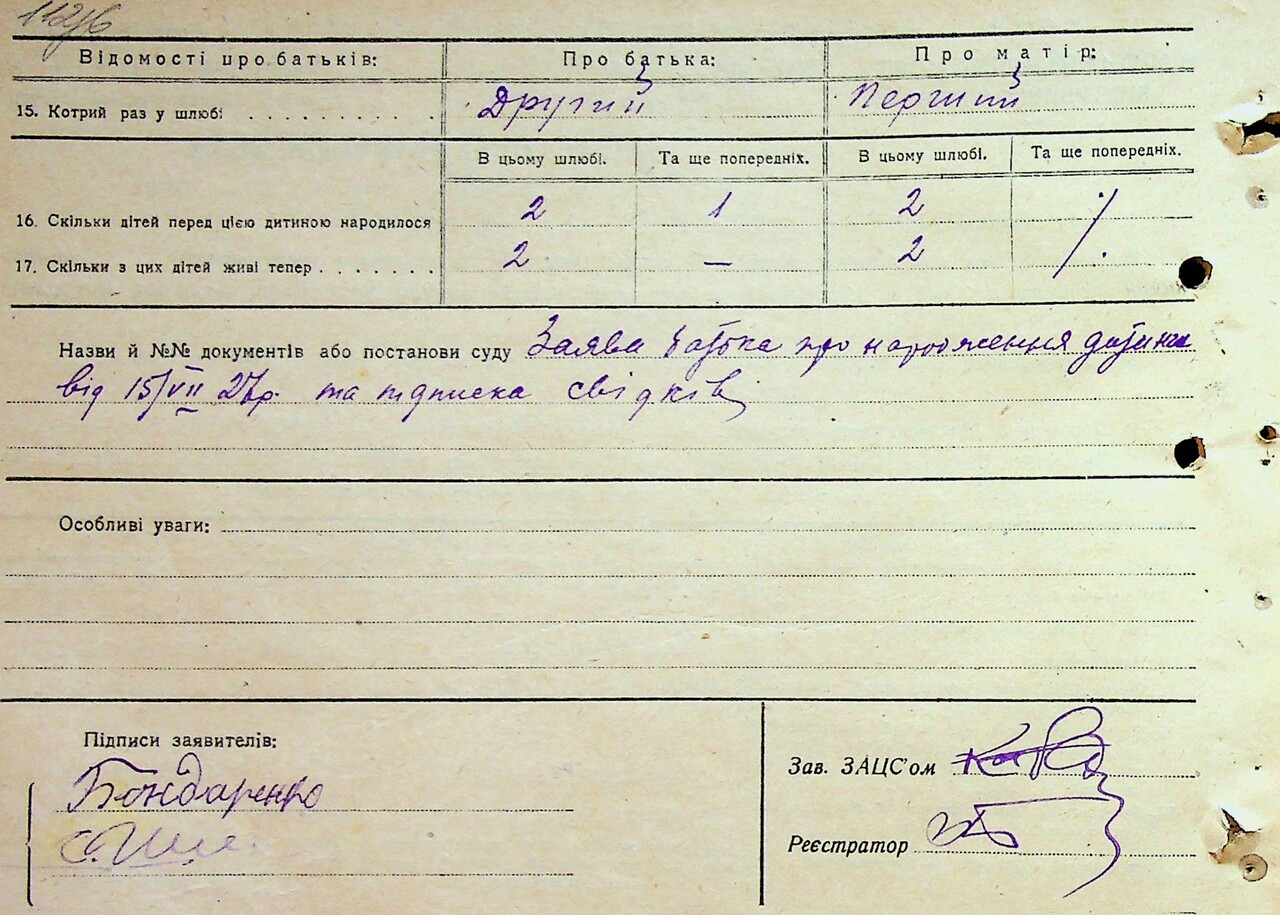 112/6
Відомості про батьків: Про батька: Про матір:
15. Котрий раз у шлюбі . . . . . . . . . . Другий Перший
В цьому шлюбі. Та ще попередніх. В цьому шлюбі. Та ще попередніх.
16. Скільки дітей перед цією дитиною народилося 2 1 2
17. Скільки з цих дітей живі тепер . . . . . . . 2 — 2
Назви й №№ документів або постанови суду Заява батька про народження дитини
від 15/VII 27р. та підписка свідків
Особливі уваги:
Підписи заявителів:
Бондаренко
Зав. ЗАЦС'ом
Реєстратор